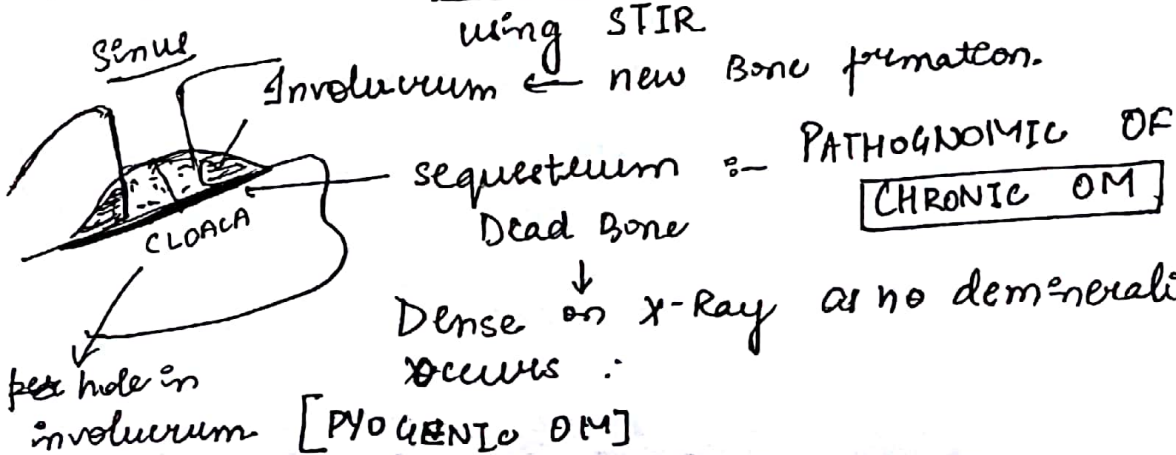 using STIR
Sinus
Involucrum ← new Bone formation.
sequestrum :- PATHOGNOMIC OF
CHRONIC OM
Dead Bone
CLOACA
↓
Dense on X-Ray as no deminerali
occurs :
hole in
involucrum [PYOGENIC OM]